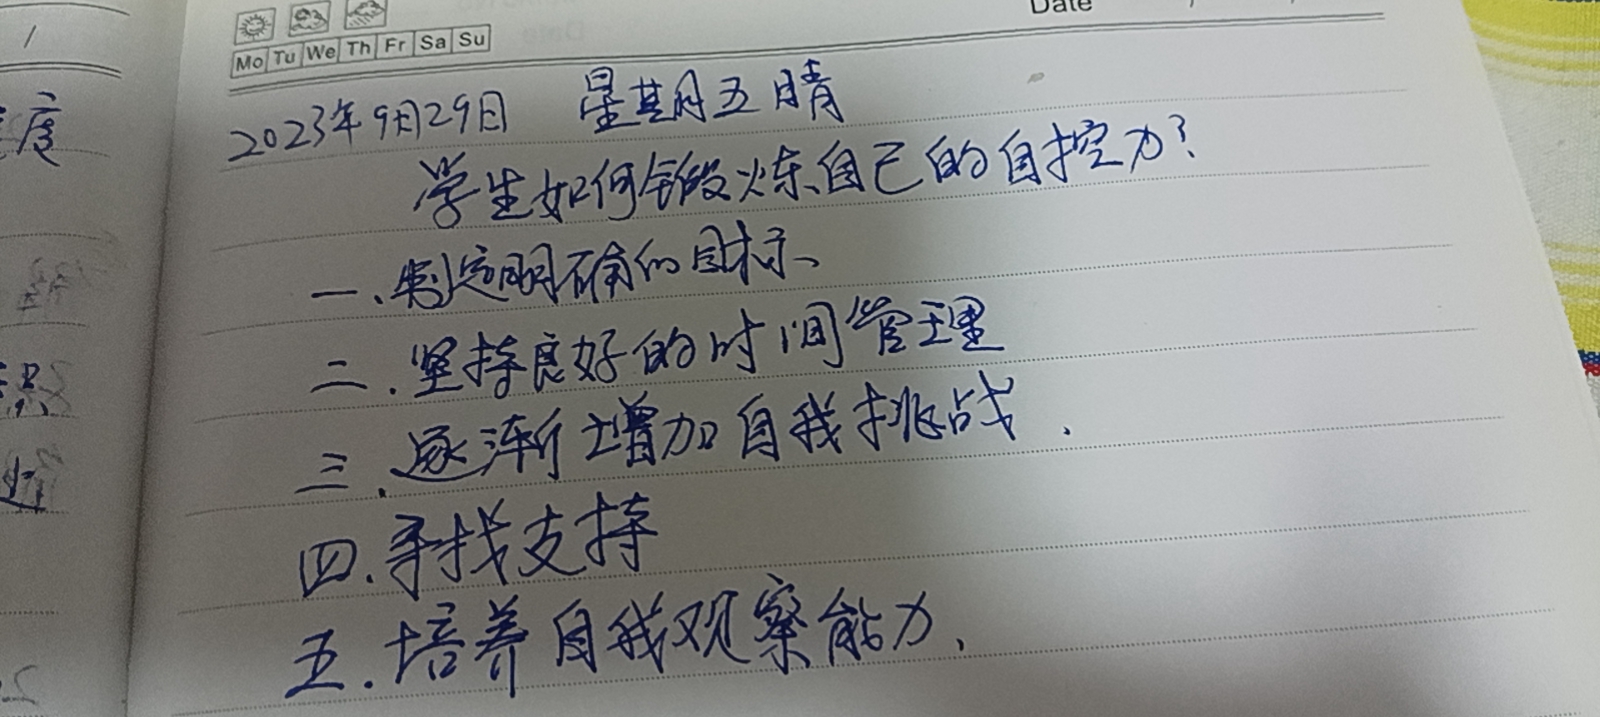 Date
Mo Tu We Th Fr Sa Su
2023年9月29日 星期五 晴
学生如何锻炼自己的自控力?
一、制定明确的目标、
二、坚持良好的时间管理
三、逐渐增加自我挑战.
四.寻找支持
五.培养自我观察能力、
度